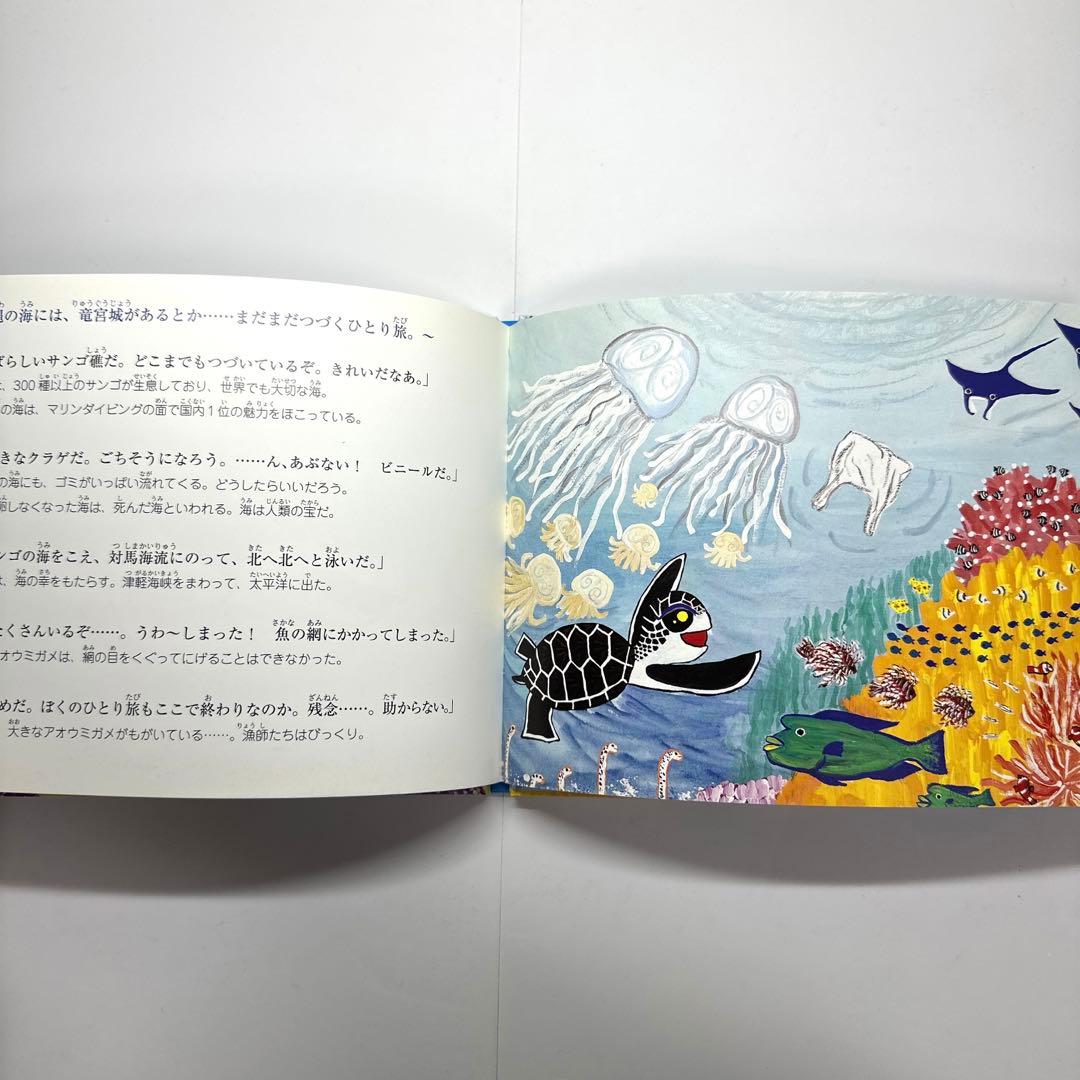 の海には、竜宮城があるとか……まだまだつづくひとり旅。～
ばらしいサンゴ礁だ。どこまでもつづいているぞ。きれいだなあ。」
は、300種以上のサンゴが生息しており、世界でも大切な海。
の海は、マリンダイビングの面で国内1位の魅力をほこっている。
きなクラゲだ。ごちそうになろう。……ん、あぶない！　ビニールだ。」
の海にも、ゴミがいっぱい流れてくる。どうしたらいいだろう。
しなくなった海は、死んだ海といわれる。海は人類の宝だ。
ンゴの海をこえ、対馬海流にのって、北へ北へと泳いだ。」
は、海の幸をもたらす。津軽海峡をまわって、太平洋に出た。
たくさんいるぞ……。うわ～しまった！　魚の網にかかってしまった。」
アオウミガメは、網の目をくぐってにげることはできなかった。
めだ。ぼくのひとり旅もここで終わりなのか。残念……。助からない。」
大きなアオウミガメがもがいている……。漁師たちはびっくり。